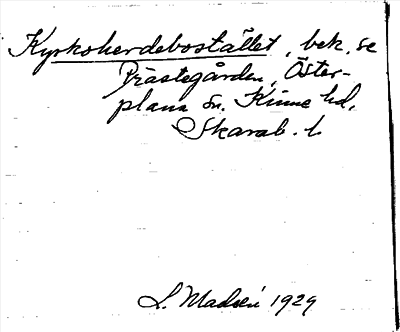 Kyrkoherdebostället, bek. se
Prästegården, Öster-
plana sn. Kinne hd,
Skarab. l.
L. 1929